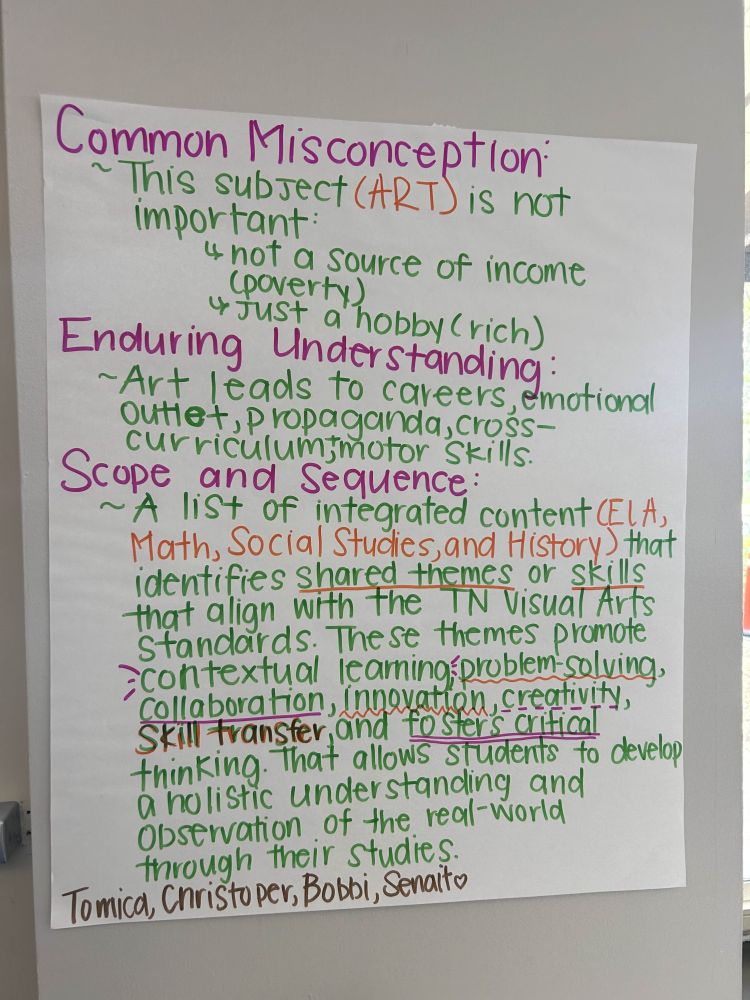 Common Misconception:
~This subject (ART) is not
important:
↳ not a source of income
(poverty)
↳ Just a hobby (rich)
Enduring Understanding:
~Art leads to careers, emotional
outlet, propaganda, cross-
curriculum, motor skills.
Scope and Sequence:
~A list of integrated content (ELA,
Math, Social Studies, and History) that
identifies shared themes or skills
that align with the TN Visual Arts
Standards. These themes promote
contextual learning, problem-solving,
collaboration, innovation, creativity,
skill transfer, and fosters critical
thinking. That allows students to develop
a holistic understanding and
observation of the real-world
through their studies.
Tomica, Christoper, Bobbi, Senait♡